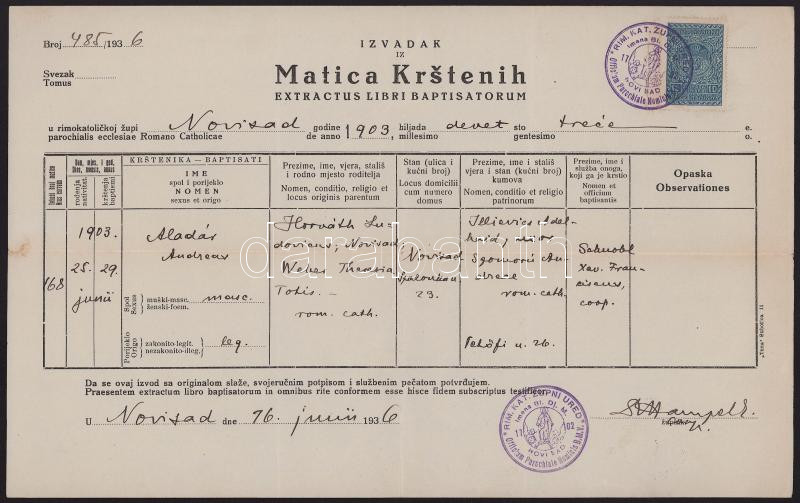 Broj 485/1936
Svezak
Tomus
IZVADAK
IZ
Matica Krštenih
EXTRACTUS LIBRI BAPTISATORUM
u rimokatoličkoj župi Novisad godine 1903 hiljada devet sto treće e.
parochialis ecclesiae Romano Catholicae de anno millesimo gentesimo o.
Dan, mjes. i god.
Dies, mensis, anni
rođenja
nativitat.
krštenja
baptismi
KRŠTENIKA — BAPTISATI
IME
spol i porijeklo
NOMEN
sexus et origo
Prezime, ime, vjera, stališ
i rodno mjesto roditelja
Nomen, conditio, religio et
locus originis parentum
Stan (ulica i
kućni broj)
Locus domicilii
cum numero
domus
Prezime, ime i stališ
vjera i stan (kućni broj)
kumova
Nomen, conditio, religio et
domicilium
patrinorum
Prezime, ime i
služba onoga,
koji ga je krstio
Nomen et
officium
baptisantis
Opaska
Observationes
168
1903.
25. 29.
junii
Aladár
Andreas
Spol
Sexus
muški-masc. masc.
ženski-foem.
Porijeklo
Origo
zakonito-legit. leg.
nezakonito-illeg.
Horváth Lu-
dovicus, Novisad,
Weber Theresia
Totis.—
rom. cath.
Novisad
23.
rom. cath.
Petőfi u. 26.
Xav. Fran-
ciscus,
coop.
Da se ovaj izvod sa originalom slaže, svojeručnim potpisom i službenim pečatom potvrđujem.
Praesentem extractum libro baptisatorum in omnibus rite conformem esse hisce fidem subscriptus testificor.
U Novisad dne 16. junii 1936
RIM. KAT. ŽUPNI URED
Imena Bl. Dj. M.
1702
NOVI SAD
Officium Parochiale Nominis B.M.V.
10
darabanth